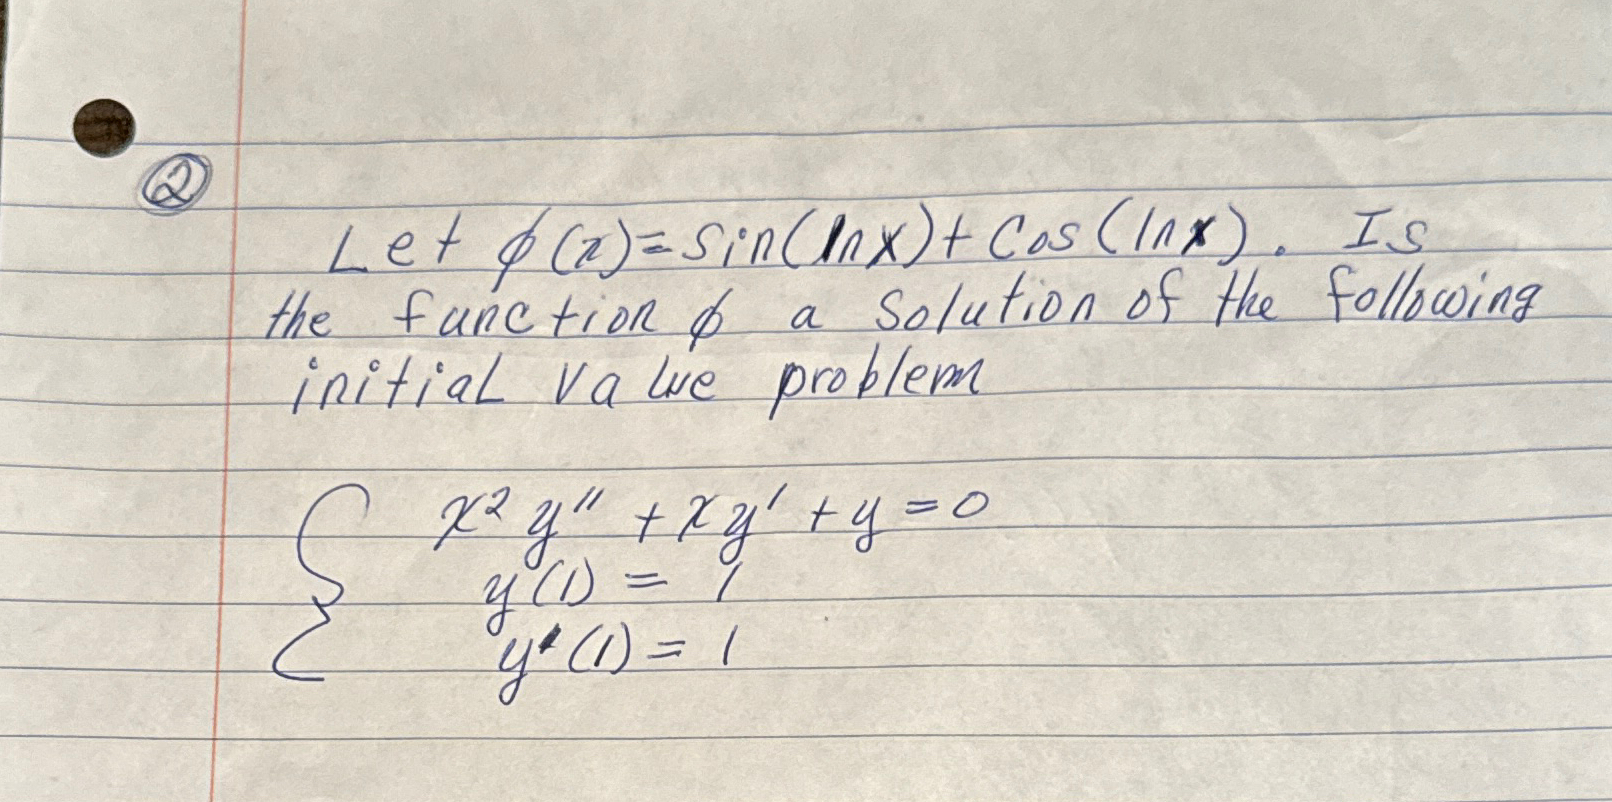 ②
Let ϕ(x)=sin(lnx)+Cos(lnx). Is
the function ϕ a solution of the following
initial value problem
{ x² y'' + xy' + y = 0
y(1) = 1
y'(1) = 1